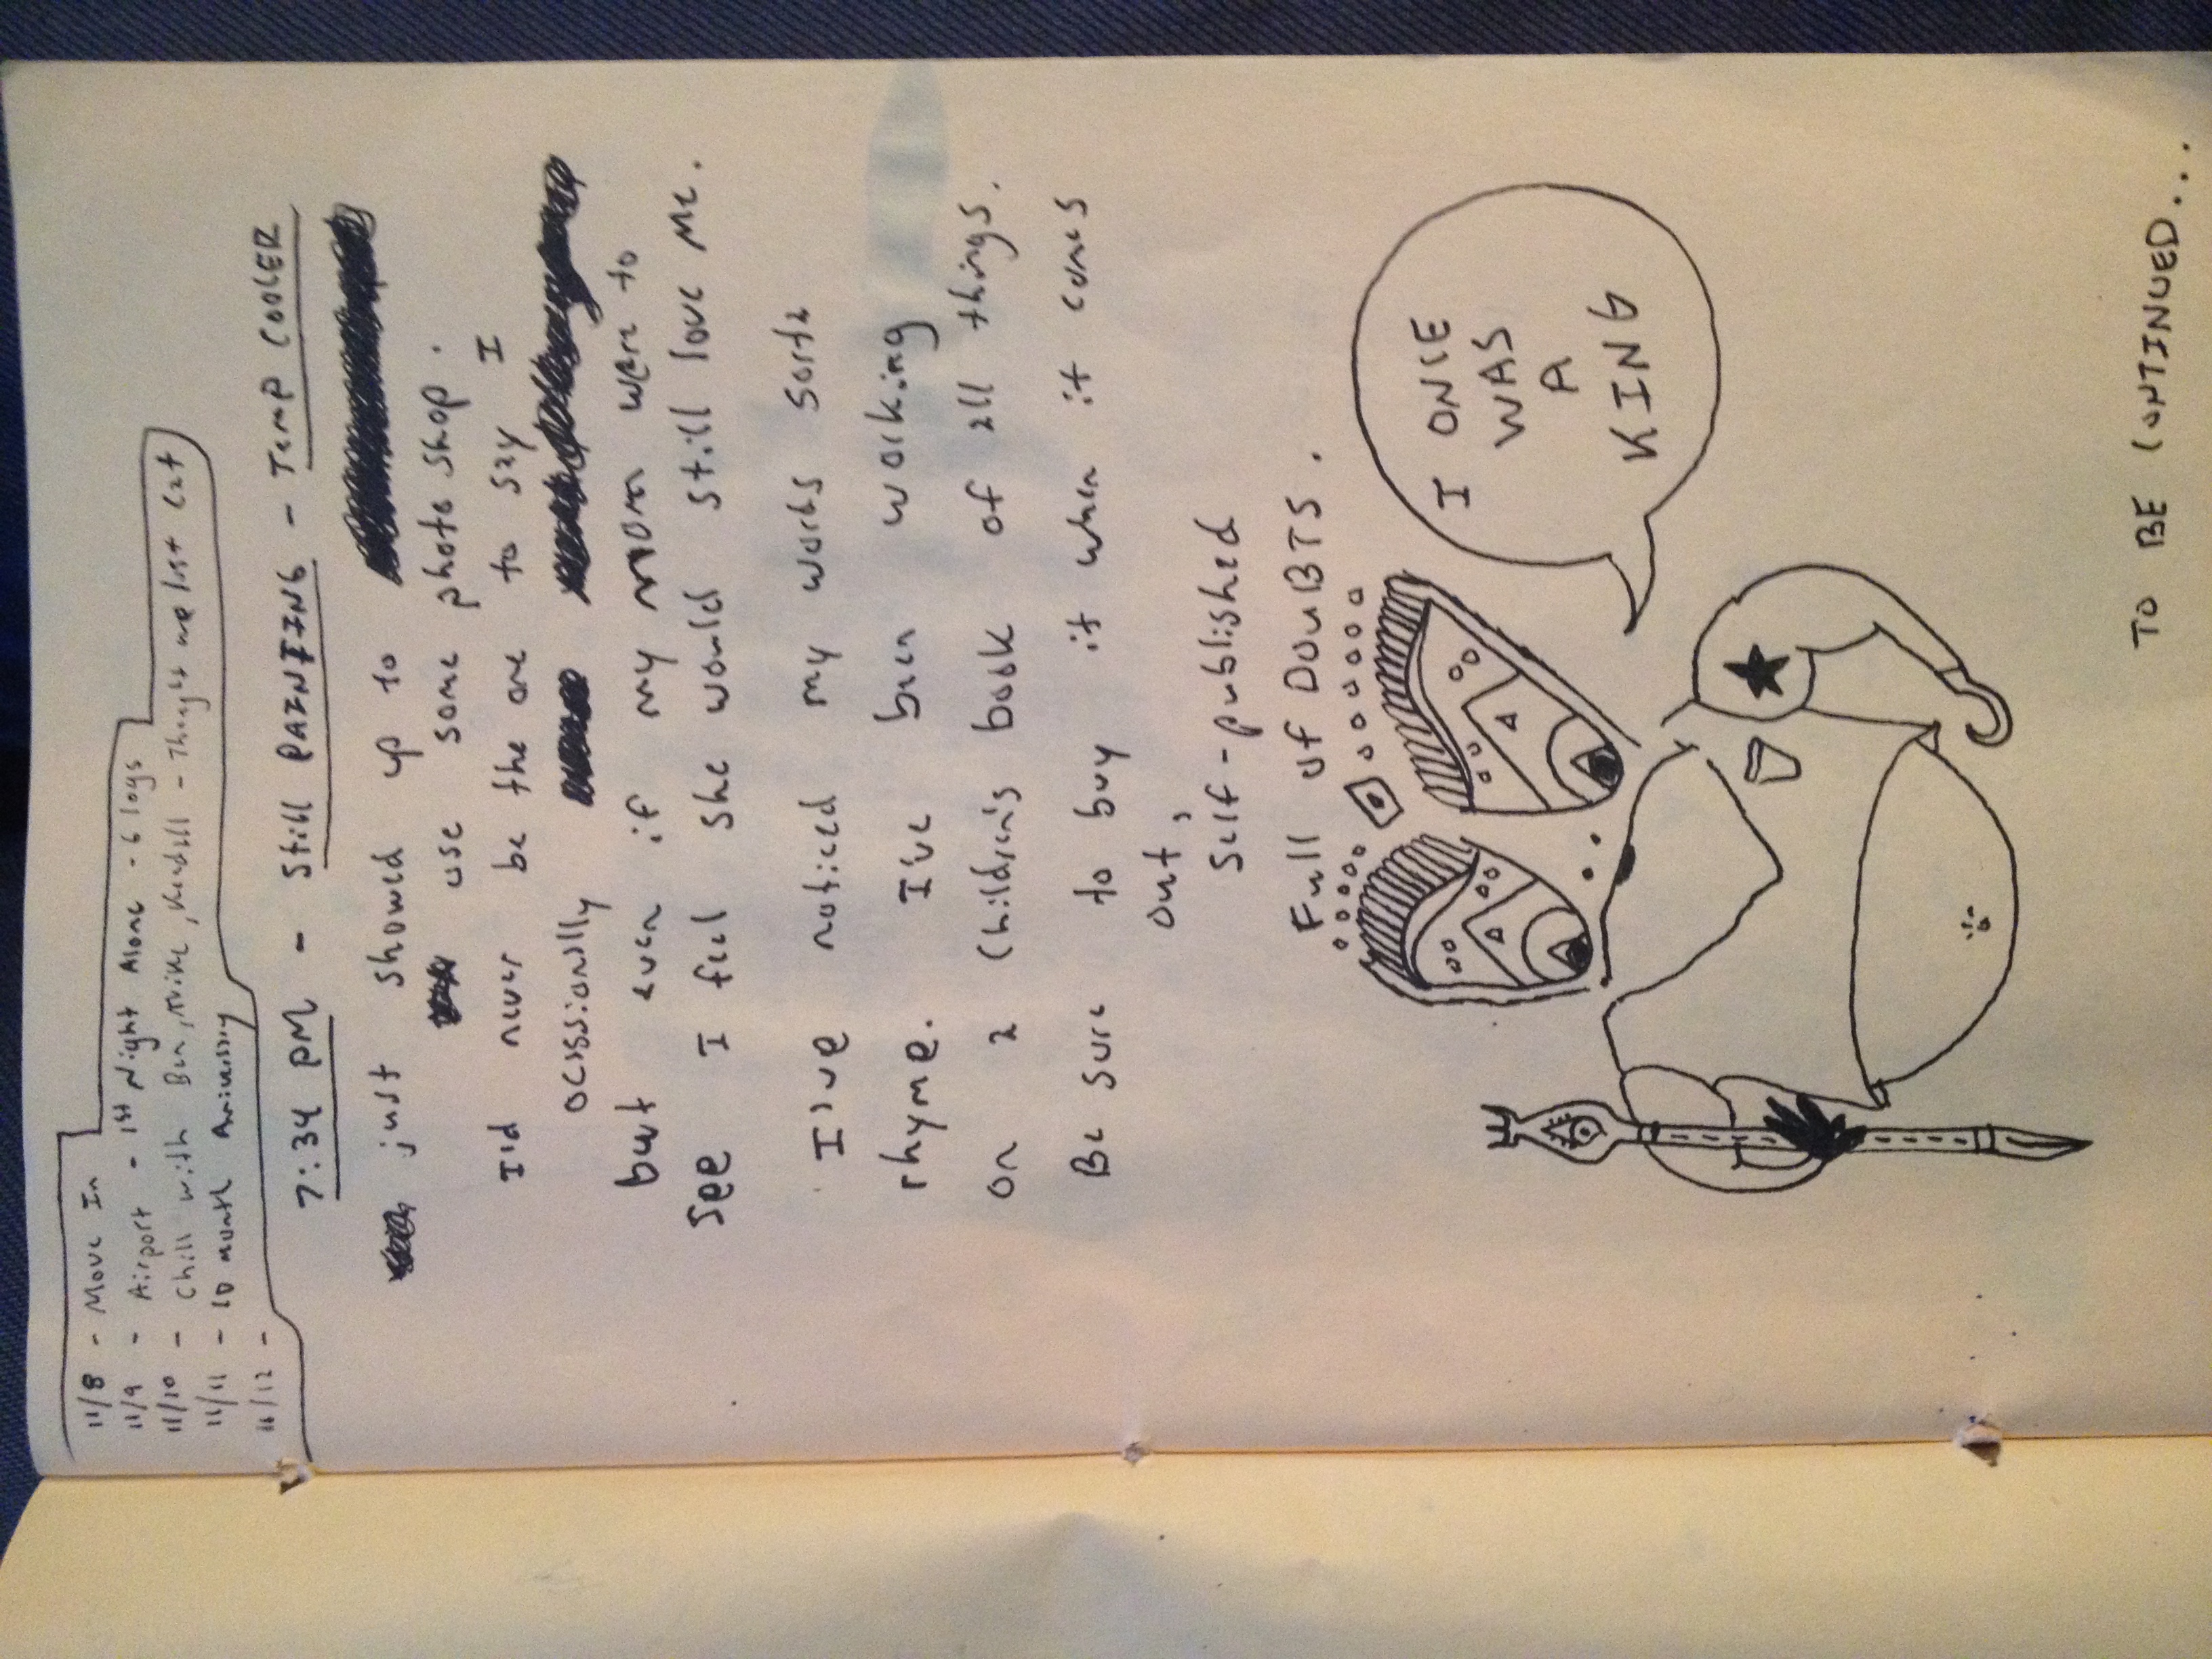 11/8 - Move In
11/9 - Airport - 1st Night Alone - 6 logs
11/10 - Chill with Ben, Mike, Kendall - Thought we lost cat
11/11 - 10 month Anniversary
11/12 -
7:34 PM - Still PAINTING - Temp COOLER
just showed up to
use some photo shop.
I'd never be the one to say I
ocassionally
but even if my mom were to
see I feel she would still love me.
I've noticed my works sorta
rhyme. I've been working
on a children's book of all things.
Be sure to buy it when it comes
out,
Self-published
Full of DOUBTS.
I ONCE
WAS
A
KING
TO BE CONTINUED...